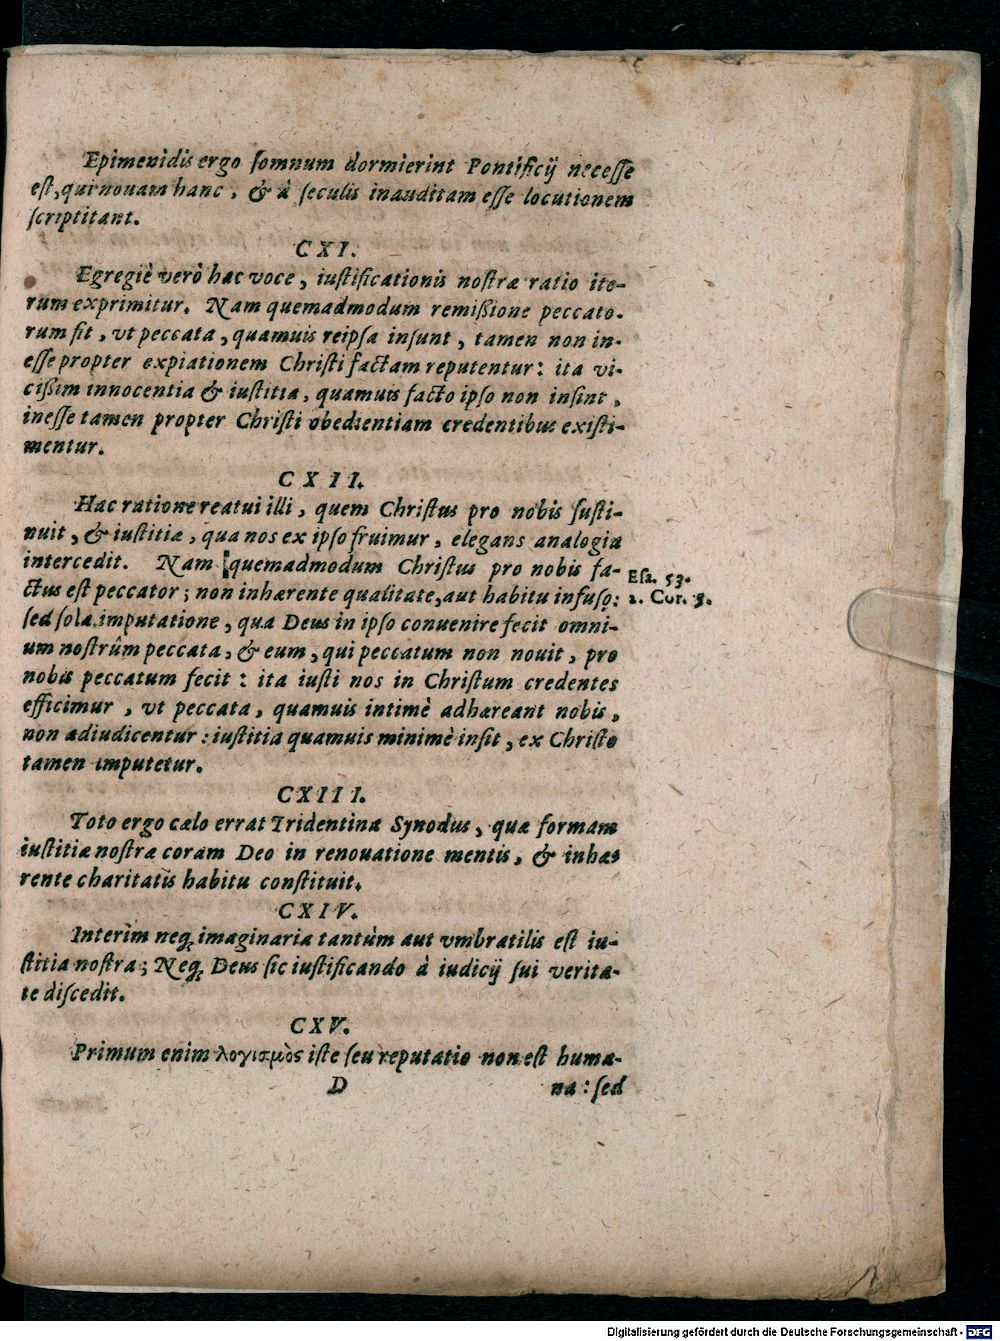 Epimenidis ergo ſomnum dormierint Pontificij neceſſe
eſt, qui nouam hanc, & à ſeculis inauditam eſſe locutionem
ſcriptitant.
CXI.
Egregiè verò hac voce, iuſtificationis noſtræ ratio ite-
rum exprimitur. Nam quemadmodum remißione peccato-
rum fit, vt peccata, quamuis reipſa inſunt, tamen non in-
eſſe propter expiationem Chriſti factam reputentur: ita vi-
cißim innocentia & iuſtitia, quamuis facto ipſo non inſint,
ineſſe tamen propter Chriſti obedientiam credentibus exiſti-
mentur.
CXII.
Hac ratione reatui illi, quem Chriſtus pro nobis ſuſti-
nuit, & iuſtitiæ, qua nos ex ipſo fruimur, elegans analogia
intercedit. Nam quemadmodum Chriſtus pro nobis fa-
ctus eſt peccator; non inhærente qualitate, aut habitu infuſo:
ſed ſola imputatione, qua Deus in ipſo conuenire fecit omni-
um noſtrûm peccata, & eum, qui peccatum non nouit, pro
nobis peccatum fecit: ita iuſti nos in Chriſtum credentes
efficimur, vt peccata, quamuis intimè adhæreant nobis,
non adiudicentur: iuſtitia quamuis minimè inſit, ex Chriſto
tamen imputetur.
Eſa. 53.
2. Cor. 5.
CXIII.
Toto ergo cælo errat Tridentina Synodus, quæ formam
iuſtitiæ noſtræ coram Deo in renouatione mentis, & inhæ
rente charitatis habitu conſtituit.
CXIV.
Interim neq; imaginaria tantùm aut vmbratilis eſt iu-
ſtitia noſtra; Neq; Deus ſic iuſtificando à iudicij ſui verita-
te diſcedit.
CXV.
Primum enim λογισμὸς iſte ſeu reputatio non eſt huma-
D na: ſed
Digitalisierung gefördert durch die Deutsche Forschungsgemeinschaft - DFG